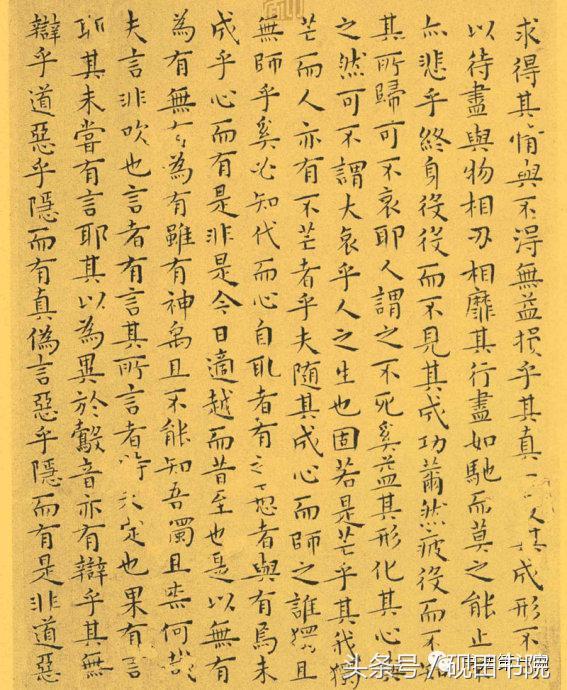 求得其情與不得無益損乎其真一其成形不
以待盡與物相刃相靡其行盡如馳而莫之能止
亦悲乎終身役役而不見其成功薾然疲役而不
其所歸可不哀耶人謂之不死奚益其形化其心
之然可不謂大哀乎人之生也固若是芒乎其我獨
芒而人亦有不芒者乎夫隨其成心而師之誰獨且
無師乎奚必知代而心自取者有之愚者與有焉未
成乎心而有是非是今日適越而昔至也是以無有
為有無〻為有雖有神禹且不能知吾獨且柰何哉
夫言非吹也言者有言其所言者特未定也果有言
耶其未嘗有言耶其以為異於鷇音亦有辯乎其無
辯乎道惡乎隱而有真偽言惡乎隱而有是非道惡
头条号／砚田书院